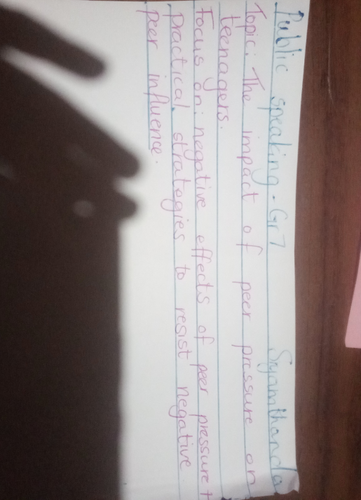 Public speaking - Gr 7 Siyamthanda
Topic: The impact of peer pressure on
teenagers.
Focus on: negative effects of peer pressure +
practical strategies to resist negative
peer influence.